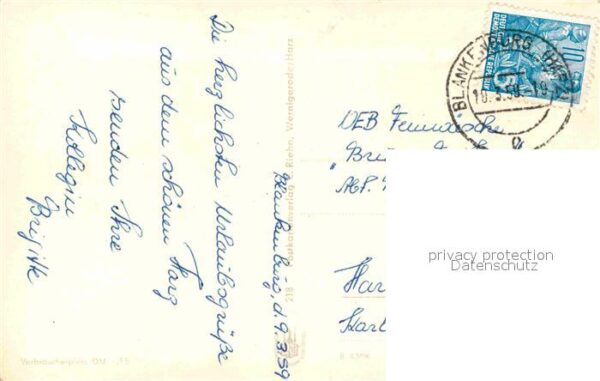 Blankenburg, d. 9.3.59
Die herzlichsten Urlaubsgrüße
aus dem schönen Harz
senden Ihre
Kollegin
Brigitte
218 Postkartenverlag E. Riehn, Wernigerode/Harz
Verbraucherpreis: DM -,15
BLANKENBURG (HARZ)
10.3.59.-19
g
10
VEB Feinwäsche
"Bru
Abt.
Har
Karl
privacy protection
Datenschutz